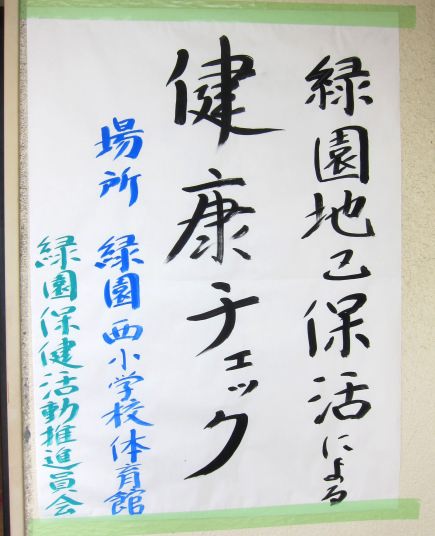 緑園地区保活による
健康チェック
場所 緑園西小学校体育館
緑園保健活動推進員会